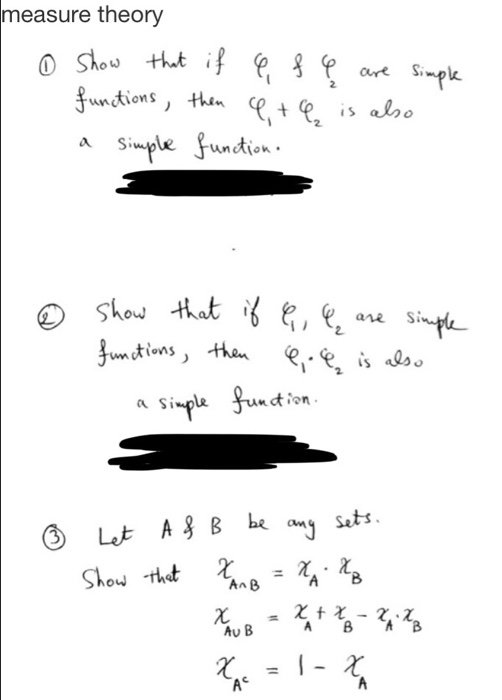 measure theory
① Show that if φ₁ & φ₂ are simple
functions, then φ₁ + φ₂ is also
a simple function.
② Show that if φ₁, φ₂ are simple
functions, then φ₁·φ₂ is also
a simple function.
③ Let A & B be any sets.
Show that χ_{A∩B} = χ_A · χ_B
χ_{A∪B} = χ_A + χ_B - χ_A·χ_B
χ_{Aᶜ} = 1 - χ_A